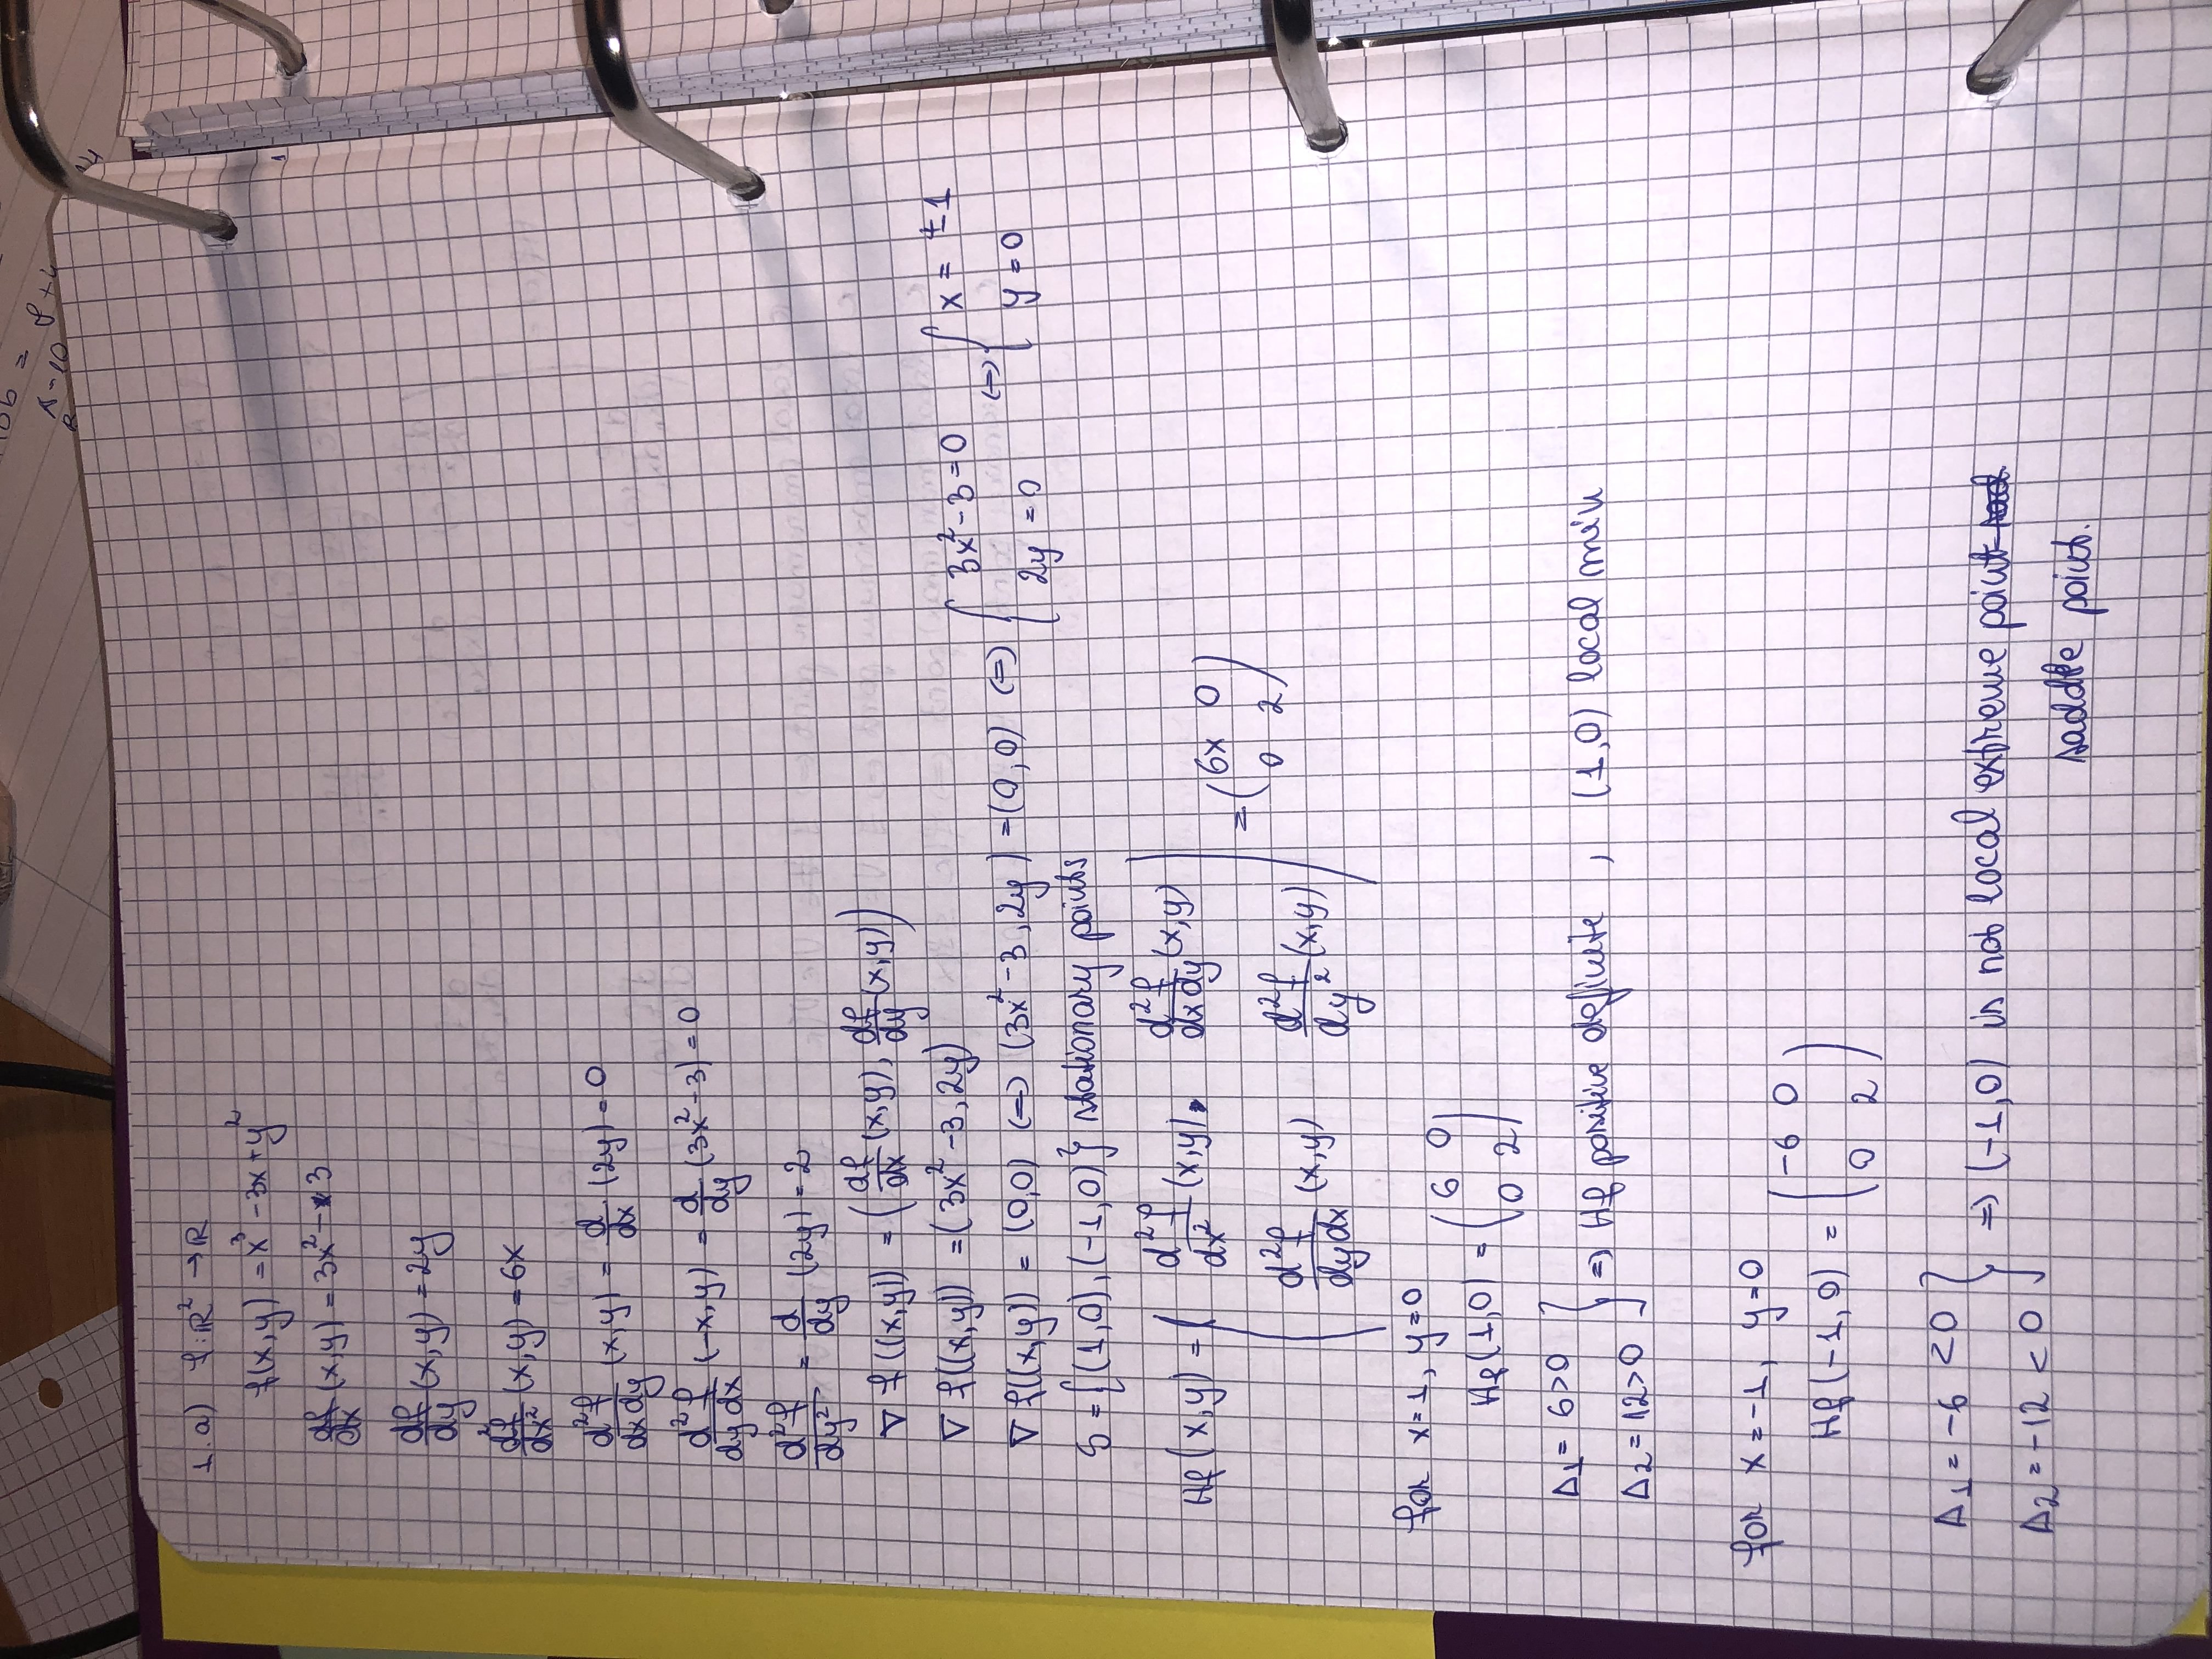 1.a) f: ℝ² → ℝ
f(x,y) = x³ - 3x + y²
df/dx (x,y) = 3x² - 3
df/dy (x,y) = 2y
d²f/dx² (x,y) = 6x
d²f/dxdy (x,y) = d/dx (2y) = 0
d²f/dydx (-x,y) = d/dy (3x² - 3) = 0
d²f/dy² = d/dy (2y) = 2
∇ f((x,y)) = (df/dx (x,y), df/dy (x,y))
∇ f((x,y)) = (3x² - 3, 2y)
∇ f((x,y)) = (0,0) ⇔ (3x² - 3, 2y) = (0,0) ⇔ { 3x² - 3 = 0 2y = 0 ⇔ { x = ±1 y = 0
S = {(1,0), (-1,0)} stationary points
Hf(x,y) = ( d²f/dx² (x,y) d²f/dxdy (x,y)
d²f/dydx (x,y) d²f/dy² (x,y) ) = ( 6x 0
0 2 )
for x=1, y=0
Hf(1,0) = ( 6 0
0 2 )
Δ1 = 6>0
Δ2 = 12>0 } ⇒ Hf positive definite, (1,0) local min
for x=-1, y=0
Hf(-1,0) = ( -6 0
0 2 )
Δ1 = -6 <0
Δ2 = -12 < 0 } ⇒ (-1,0) is not local extreme point
saddle point.